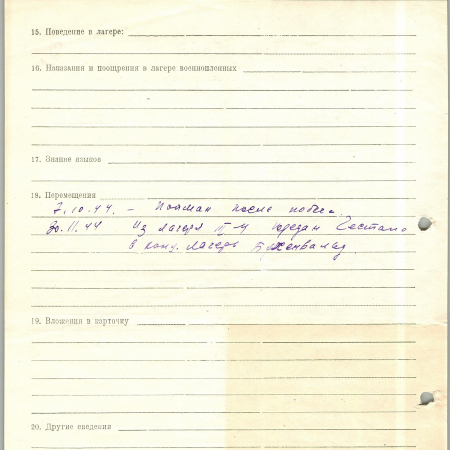 15. Поведение в лагере:
16. Наказания и поощрения в лагере военнопленных
17. Знание языков
18. Перемещения
7.10.44. – Пойман после побега.
30.11.44 Из лагеря IV-Ч передан Гестапо
в конц. лагерь Бухенвальд
19. Вложения в карточку
20. Другие сведения